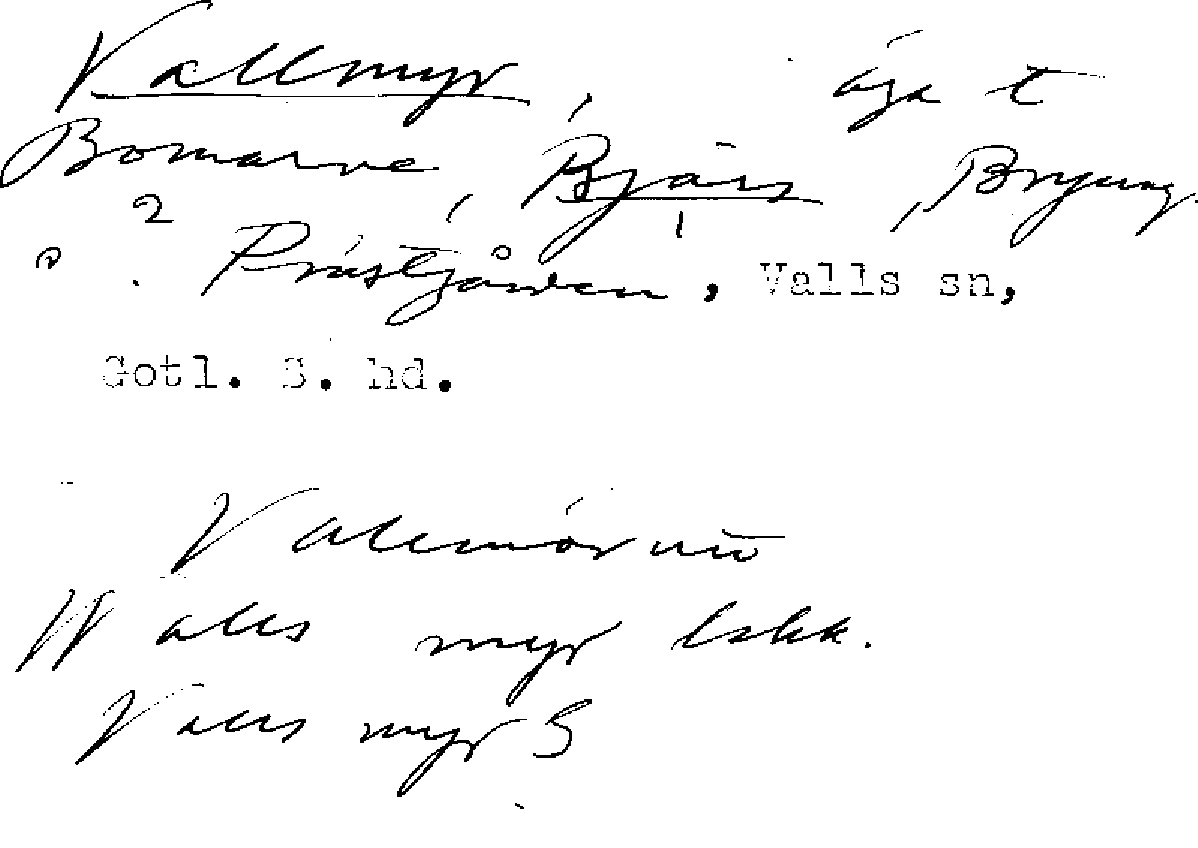 Vallmyr, äga t
Bomarve, Bjärs, Bryung
2 1
o. Prästgården, Valls sn,
Gotl. S. hd.
Walls myr lskk.
Valls myr S